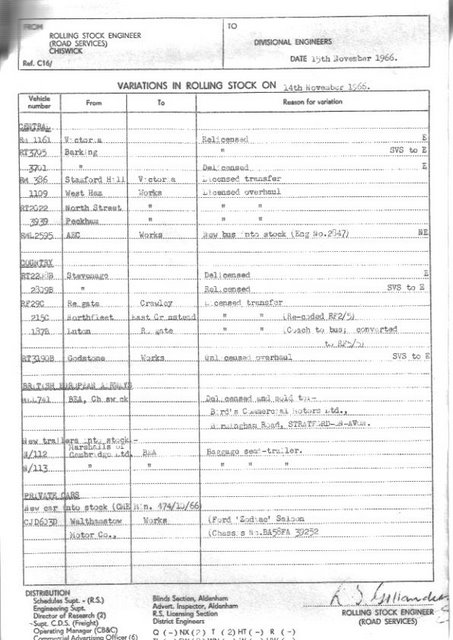 FROM
ROLLING STOCK ENGINEER
(ROAD SERVICES)
CHISWICK
Ref. C16/
TO
DIVISIONAL ENGINEERS
DATE 15th November 1966.
VARIATIONS IN ROLLING STOCK ON 14th November 1966.
Vehicle number From To Reason for variation
CENTRAL
1161 Victoria Relicensed E
RT3705 Barking " SVS to E
3701 " Delicensed E
RM 386 Stamford Hill Victoria Licensed transfer
1109 West Ham Works Licensed overhaul
RT2022 North Street " " "
3939 Peckham " " "
RML2595 AEC Works New bus into stock (Eng No.2847) NE
COUNTRY
Stevenage Delicensed E
" Relicensed SVS to E
RF29C Reigate Crawley Licensed transfer
215C Northfleet East Grinstead " " (Re-coded RF2/5)
Luton Reigate " " (Coach to bus; converted
to RF5/5)
RT3190B Godstone Works Unlicensed overhaul SVS to E
BRITISH EUROPEAN AIRWAYS
BEA, Chiswick Delicensed and sold to:-
Bird's Commercial Motors Ltd.,
Birmingham Road, STRATFORD-ON-AVON.
New trailers into stock:-
N/112 Marshalls of Cambridge Ltd. BEA Baggage semi-trailer.
N/113 " " " " " "
PRIVATE CARS
New car into stock (CME Min. 474/10/66)
CJD603D Walthamstow Works (Ford 'Zodiac' Saloon
Motor Co., (Chassis No.BA58FA 39252
DISTRIBUTION
Schedules Supt. - (R.S.)
Engineering Supt.
Director of Research (2)
-Supt. C.D.S. (Freight)
Operating Manager (CB&C)
Commercial Advertising Officer (6)
Blinds Section, Aldenham
Advert. Inspector, Aldenham
R.S. Licensing Section
District Engineers
ROLLING STOCK ENGINEER
(ROAD SERVICES)